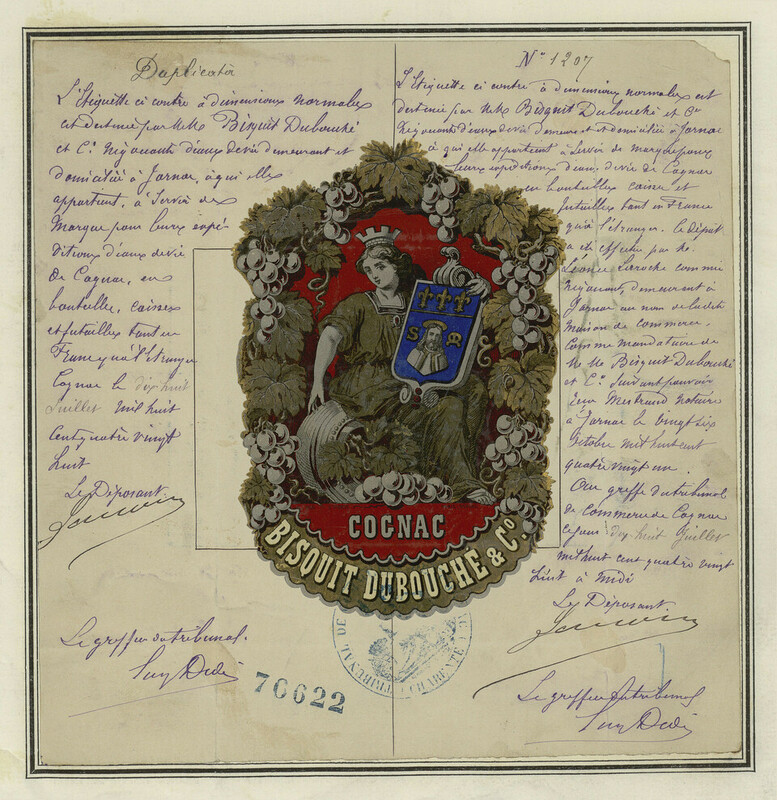 Duplicata
L'Etiquette ci contre à dimensions normales
est destinée par MM. Bisquit Dubouché
et Cie. Négociants d'eaux de vie demeurant et
domiciliés à Jarnac, à qui elle
appartient, à Servir de
Marque pour leurs expé-
ditions d'eaux de vie
de Cognac, en
bouteilles, caisses
et futailles tant en
France qu'à l'étranger
Cognac le dix huit
Juillet mil huit
cent quatre vingt
huit
Le Déposant
Le greffier du tribunal.
N° 1207
L'Etiquette ci contre à dimensions normales est
destinée par MM. Bisquit Dubouché et Cie
Négociants d'eaux de vie demeurant et domiciliés à Jarnac
à qui elle appartient à Servir de marque pour
leurs expéditions d'eaux de vie de Cognac
en bouteilles caisses et
futailles tant en France
qu'à l'étranger. Le dépôt
a été effectué par M.
Léonce Laroche commis
négociant, demeurant à
Jarnac au nom de ladite
maison de commerce.
Comme mandataire de
MM. Bisquit Dubouché
et Cie. Suivant pouvoir
notaire
à Jarnac le vingt six
Octobre mil huit cent
quatre vingt un.
Au greffe du tribunal
de commerce de Cognac
ce jour dix huit Juillet
mil huit cent quatre vingt
huit à midi
Le Déposant
Le greffier du tribunal
S
COGNAC
BISQUIT DUBOUCHÉ & Co.
TRIBUNAL DE
CHARENTE
76622